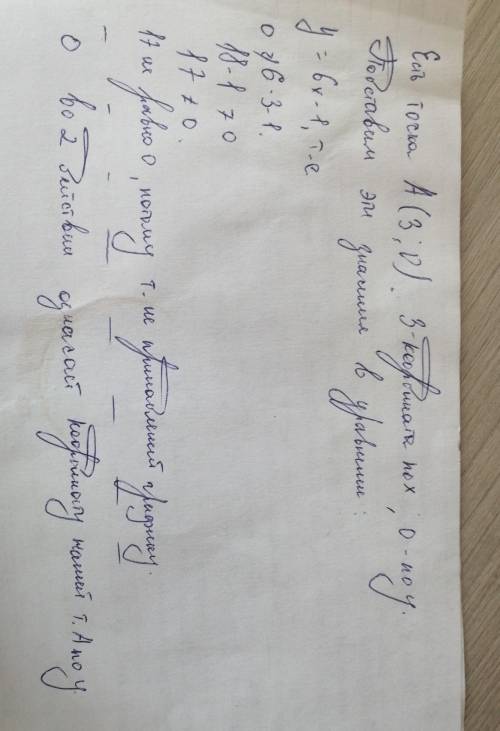 Есть точка А(3;0). 3-координата по х, 0-по у.
Подставим эти значения в уравнение:
у = 6х-1, т-е
0 ≠ 6·3-1.
18-1 ≠ 0
17 ≠ 0.
17 не равно 0, потому т. не принадлежит графику.
0 во 2 действии означает координату нашей т. А по у.